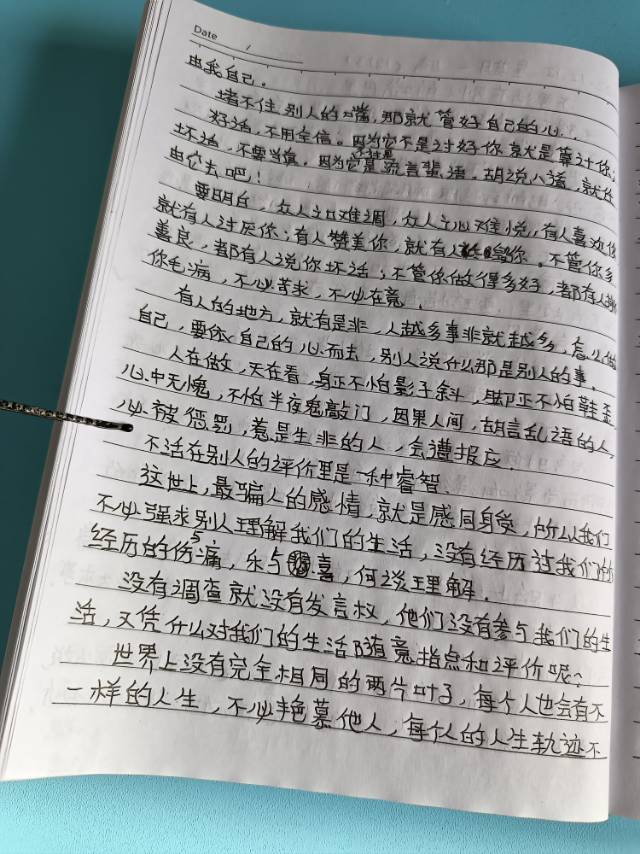 Date /
由我自己。
堵不住别人的嘴,那就管好自己的心.
好话,不用全信。因为它不是讨好你就是算计你;
坏话,不要当真。因为它是流言蜚语。胡说八道,就任
由它去吧!
要明白,众人之口难调,众人之心难悦,有人喜欢你
就有人讨厌你;有人赞美你,就有人你。不管你多
善良,都有人说你坏话;不管你做得多好,都有人
你毛病,不必苛求,不必在意。
有人的地方,就有是非,人越多事非就越多,怎么做
自己,要你自己的心而去,别人说什么那是别人的事.
人在做,天在看,身正不怕影子斜,脚正不怕鞋歪
心中无愧,不怕半夜鬼敲门,因果人间,胡言乱语的人,
必被惩罚,惹是生非的人,会遭报应.
不活在别人的评价里是一种睿智、
这世上,最骗人的感情,就是感同身受,所以我们
不必强求别人理解我们的生活,没有经历过我们所
经历的伤与痛,乐与喜,何谈理解.
没有调查就没有发言权,他们没有参与我们的生
活,又凭什么对我们的生活随意指点和评价呢?
世界上没有完全相同的两片叶子,每个人也会有不
一样的人生,不必艳慕他人,每个人的人生轨迹不